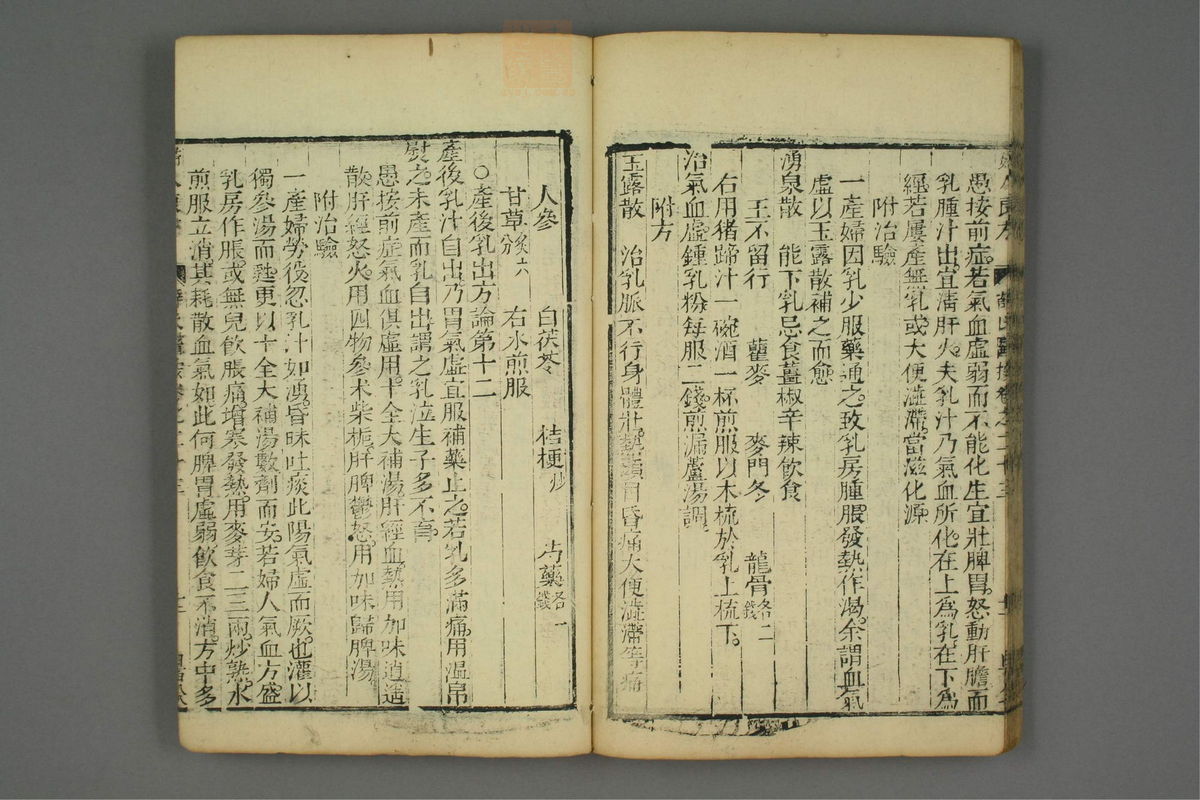 愚按前症若氣血虛弱而不能化生宜壯脾胃怒動肝膽而
乳腫汁出宜清肝火夫乳汁乃氣血所化在上爲乳在下爲
經若屢產無乳或大便澁滯當滋化源
附治驗
一產婦因乳少服藥通之致乳房腫脹發熱作渴余謂血氣
虛以玉露散補之而愈
湧泉散 能下乳忌食薑椒辛辣飲食
王不留行 瞿麥 麥門冬 龍骨各二錢
右用猪蹄汁一碗酒一杯煎服以木梳於乳上梳下
治氣血虛鍾乳粉每服二錢煎漏蘆湯調
附方
玉露散 治乳脈不行身體壯熱頭目昏痛大便澁滯等痛
人參 白茯苓 桔梗炒 芍藥各一錢
甘草炙六分 右水煎服
○產後乳出方論第十二
產後乳汁自出乃胃氣虛宜服補藥止之若乳多滿痛用温帛
熨之未產而乳自出謂之乳泣生子多不育
愚按前症氣血俱虛用十全大補湯肝經血熱用加味逍遥
散肝經怒火用四物參术柴梔肝脾鬱怒用加味歸脾湯
附治驗
一產婦勞役忽乳汁如湧昏昧吐痰此陽氣虛而厥也灌以
獨參湯而甦更以十全大補湯數劑而安若婦人氣血方盛
乳房作脹或無兒飲脹痛增寒發熱用麥芽二三兩炒熟水
煎服立消其耗散血氣如此何脾胃虛弱飲食不消方中多